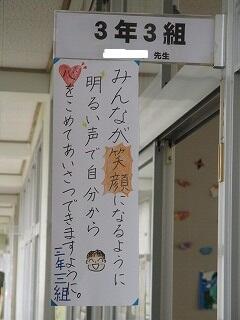 3年3組
先生
みんなが笑顔になるように
明るい声で自分から
心をこめてあいさつできますように。
三年三組